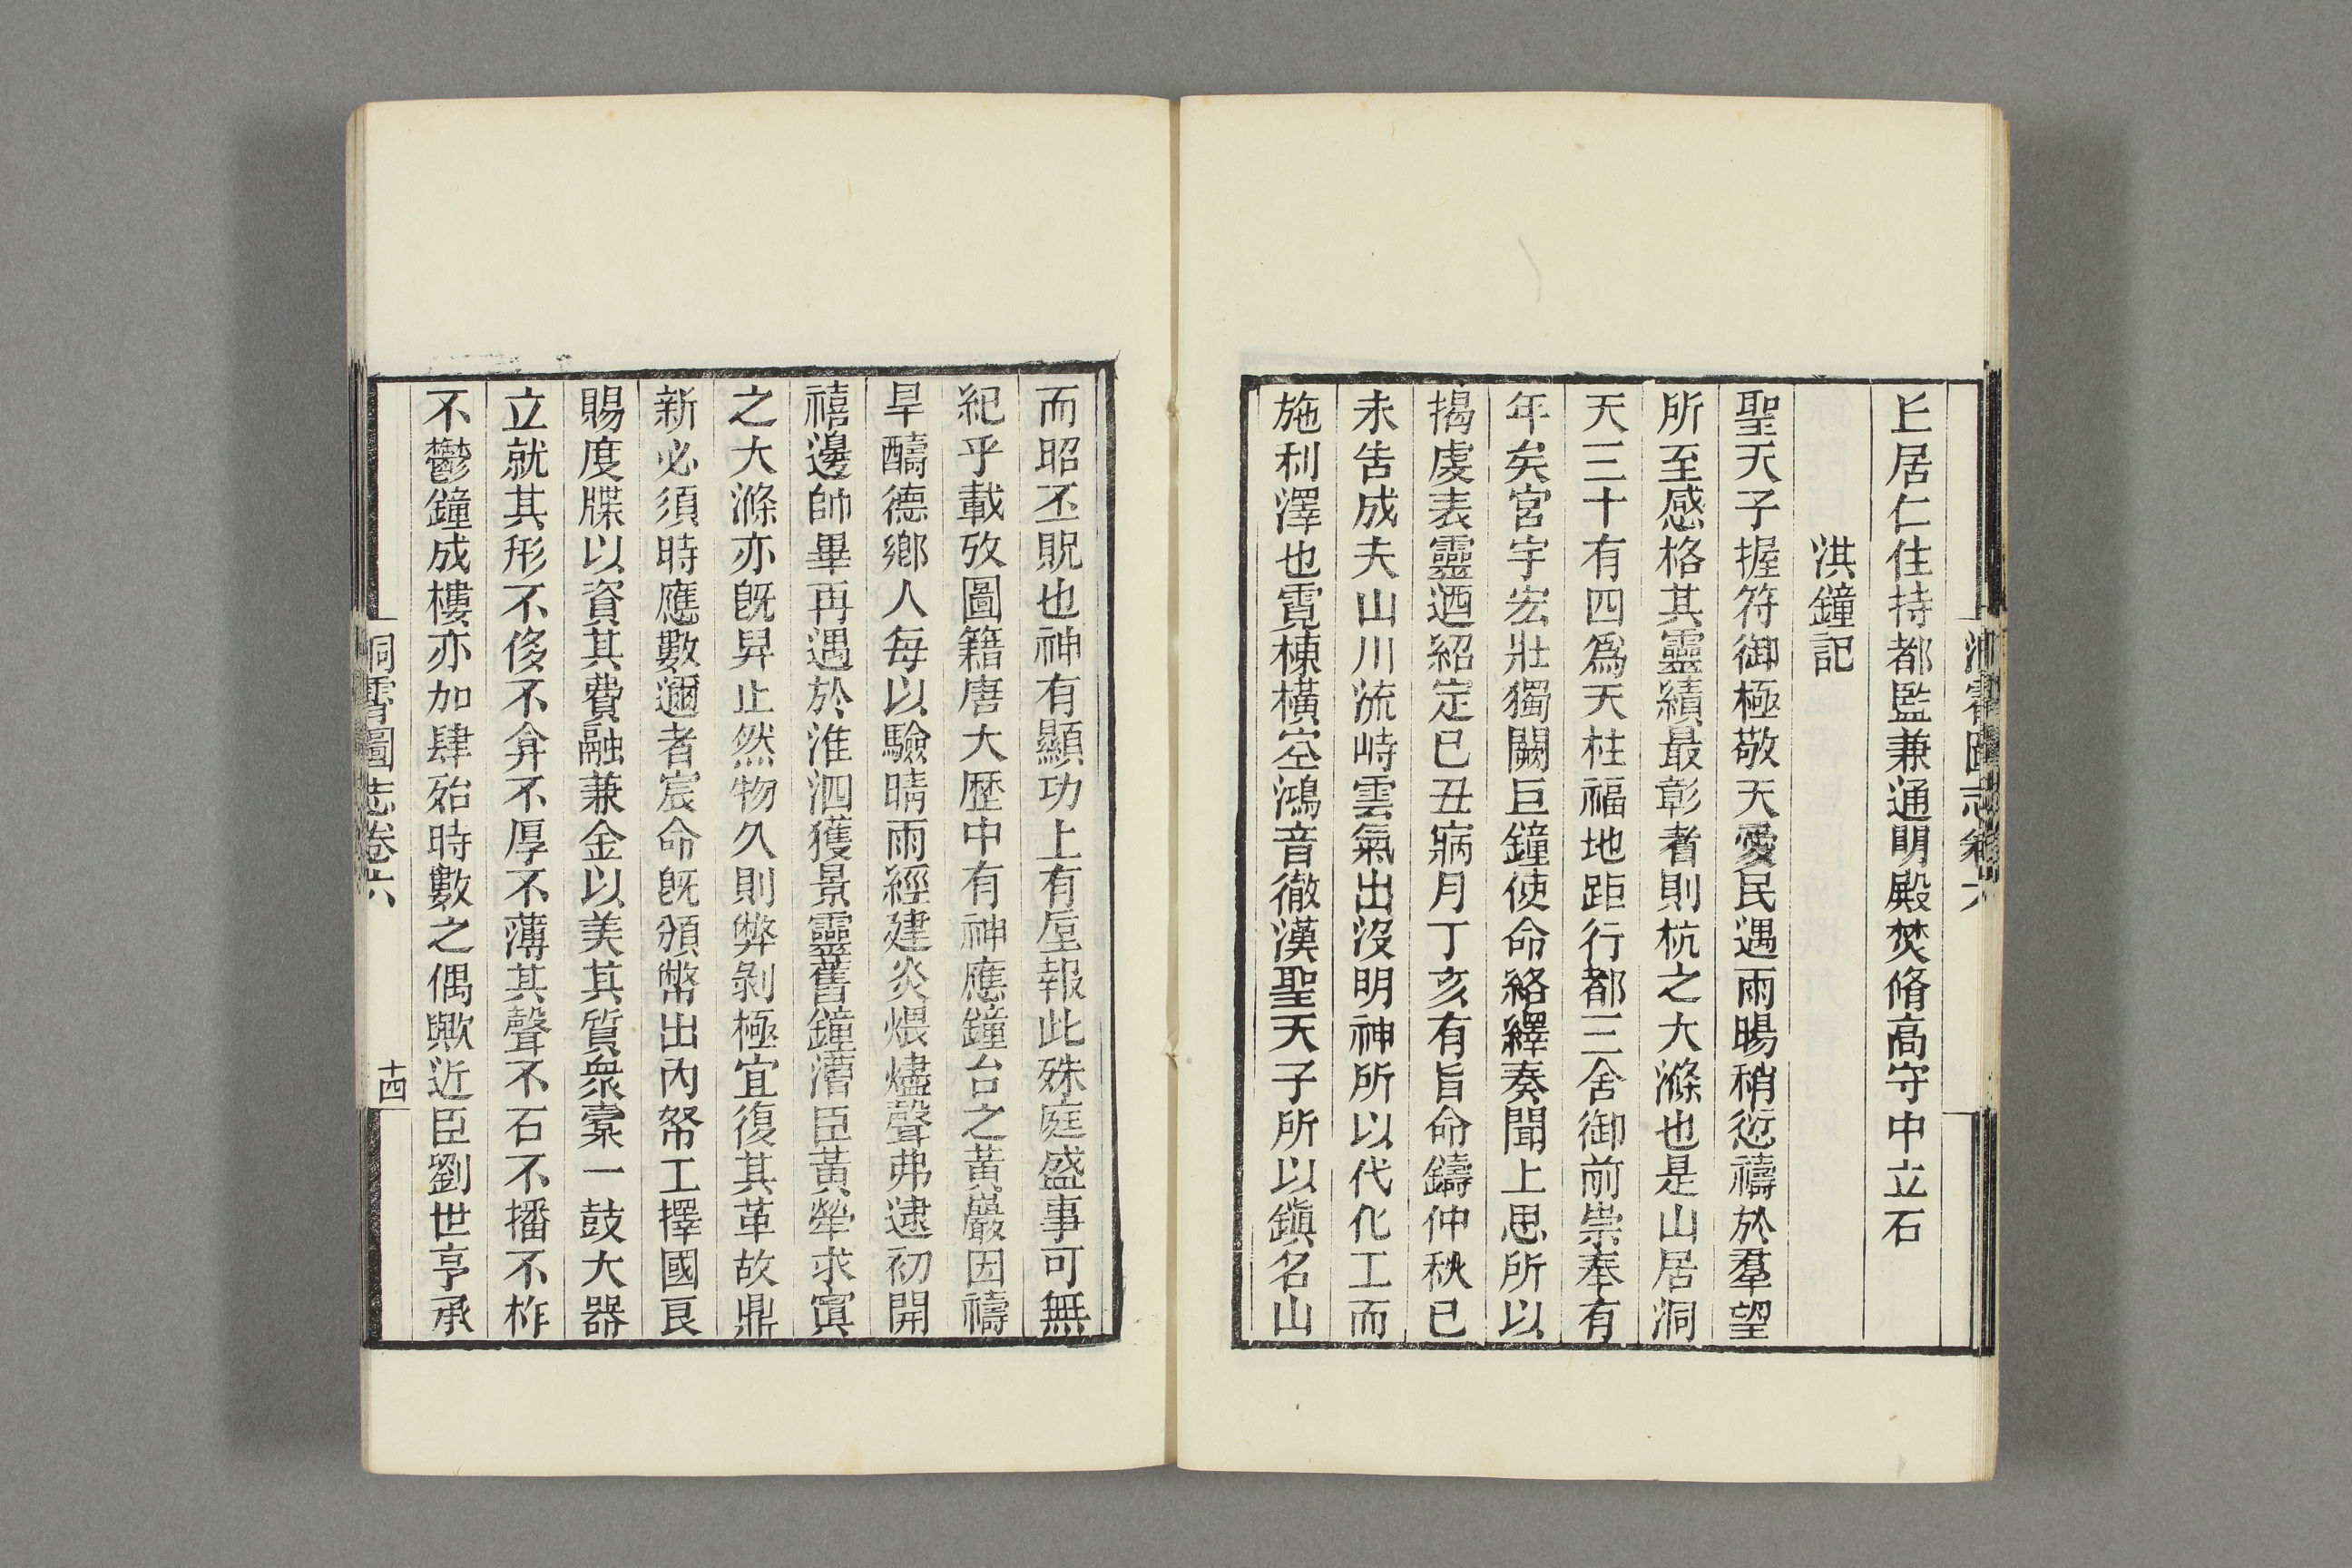 洞霄圖志卷六
上居仁住持都監兼通明殿焚脩高守中立石
洪鐘記
聖天子握符御極敬天愛民遇雨暘稍愆禱於羣望
所至感格其靈績最彰者則杭之大滌也是山居洞
天三十有四爲天柱福地距行都三舍御前崇奉有
年矣宮宇宏壯獨闕巨鐘使命絡繹奏聞上思所以
揭虔表靈迺紹定已丑病月丁亥有旨命鑄仲秋已
未告成夫山川流峙雲氣出沒明神所以代化工而
施利澤也霓棟橫空鴻音徹漢聖天子所以鎭名山
而昭丕貺也神有顯功上有垕報此殊庭盛事可無
紀乎載攷圖籍唐大歷中有神應鐘台之黃巖因禱
旱醻德鄉人每以驗晴雨經建炎煨燼聲弗逮初開
禧邊帥畢再遇於淮泗獲景靈舊鐘漕臣黃犖求寘
之大滌亦旣舁止然物久則弊剝極宜復其革故鼎
新必須時應數邇者宸命旣頒幣出內帑工擇國良
賜度牒以資其費融兼金以美其質衆橐一鼓大器
立就其形不侈不弇不厚不薄其聲不石不播不柞
不鬱鐘成樓亦加肆殆時數之偶歟近臣劉世亨承
洞霄圖志卷六
十四